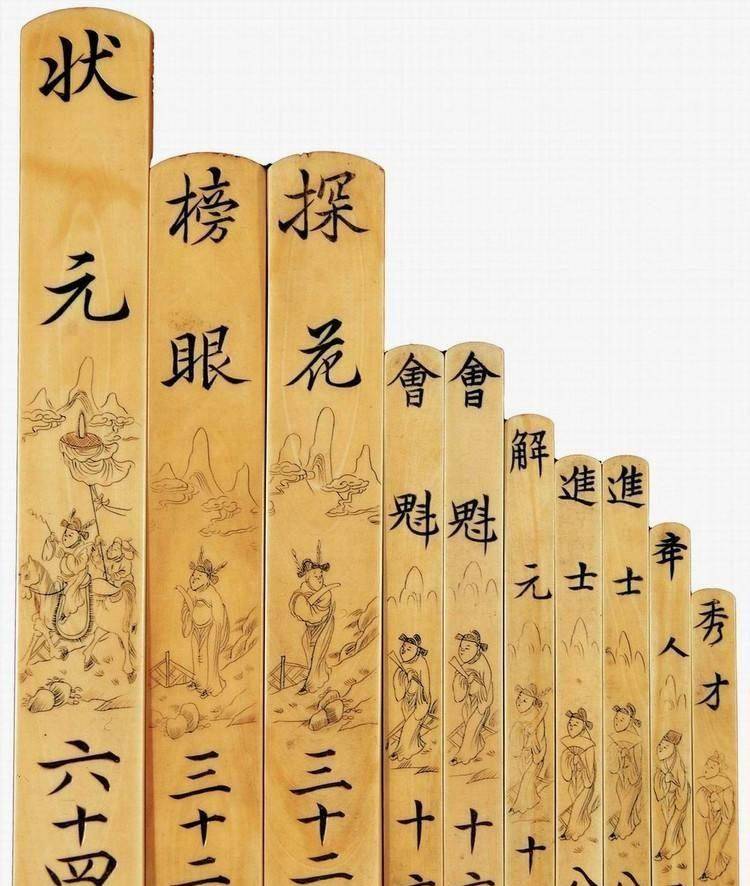 状元
六十四
榜眼
三十二
探花
三十二
會魁
十
會魁
十
解元
十
進士
八
進士
八
人
秀才